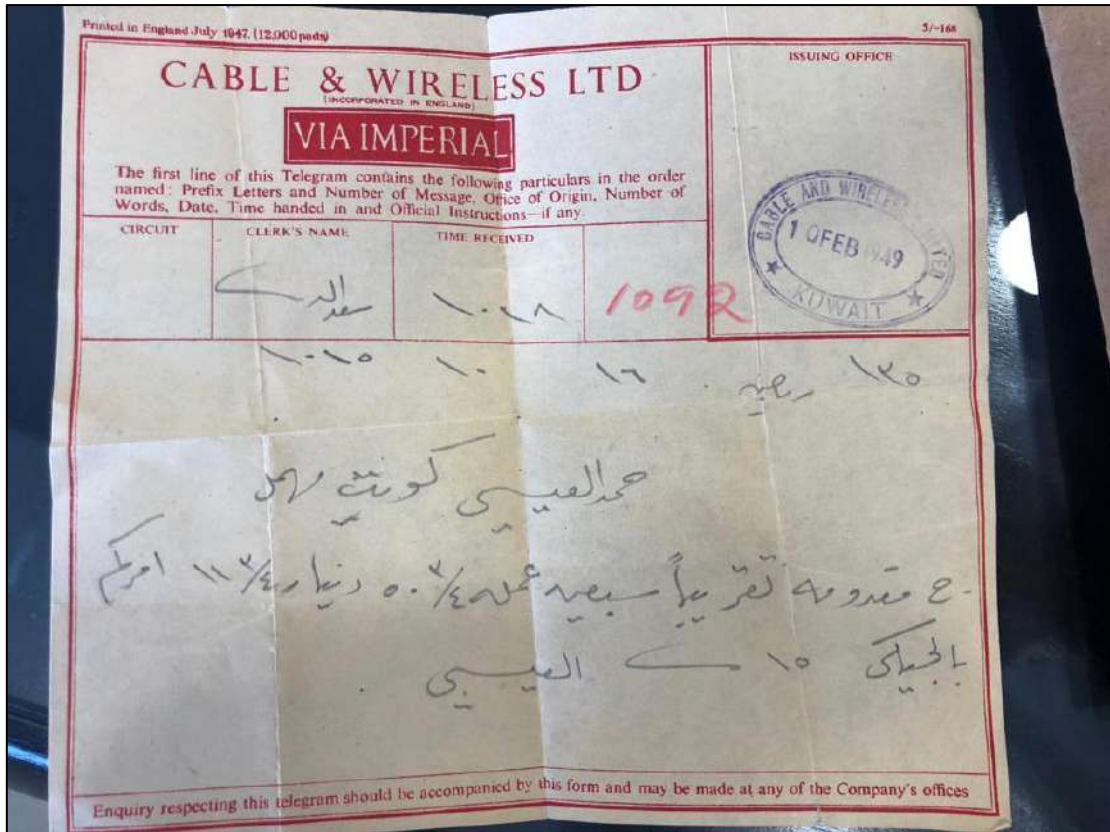 Printed in England July 1947. (12,000 pads)
5/-168
CABLE & WIRELESS LTD
(INCORPORATED IN ENGLAND)
VIA IMPERIAL
The first line of this Telegram contains the following particulars in the order
named: Prefix Letters and Number of Message, Office of Origin, Number of
Words, Date, Time handed in and Official Instructions—if any.
ISSUING OFFICE
CABLE AND WIRELESS LIMITED
10 FEB 1949
KUWAIT
CIRCUIT
CLERK'S NAME
TIME RECEIVED
١٠١٨
1092
١٣٥ ١٦ ١٠ ١٠١٥
حمد العيسى كويت
مقدومه تقريباً سبعين عمله ٥٠ ٣/٤ دينار ١١ ٣/٤
١٥ العيسى
Enquiry respecting this telegram should be accompanied by this form and may be made at any of the Company's offices